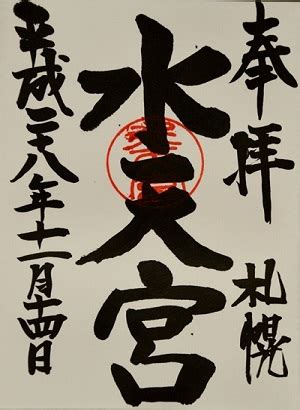 奉拝 札幌
水天宮
平成二十八年十一月十四日